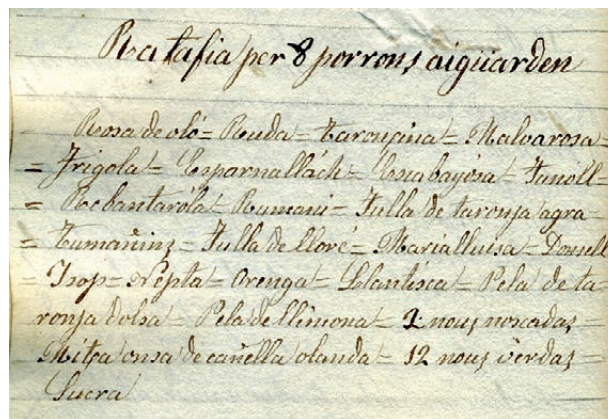 Ratafia per 8 porrons aiguarden
Rosa de oló = Ruda = Tarongina = Malvarosa =
= Frigola = Esparnallàch = Escabayósa = Funoll
= Rumani = Fulla de taronja agra =
= Fulla de lloré = Marialluisa = Donsell
= Isop = Nepta = Orenga = Pela de ta
ronja dolsa = Pela de llimona = 2 nous noscadas =
Mitja onsa de cañella olanda = 12 nous verdas =
Sucra